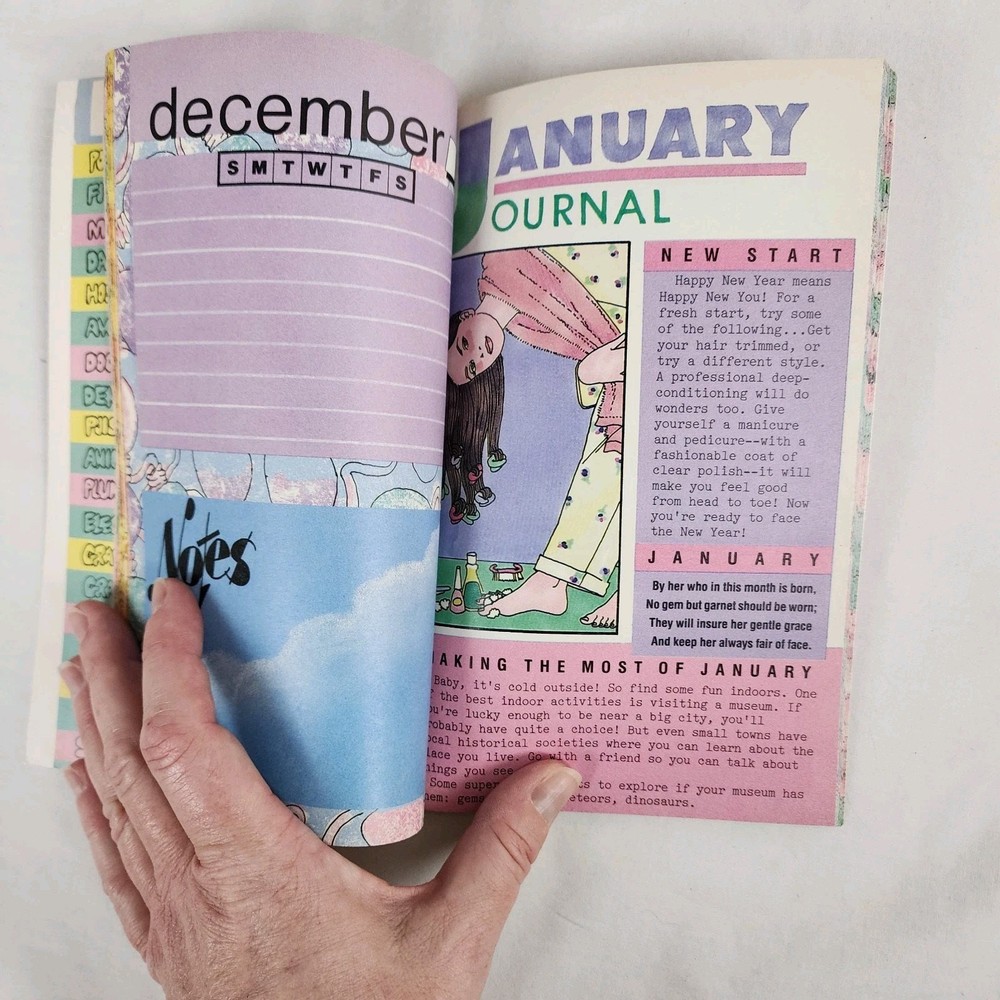 december
S M T W T F S
Notes
JANUARY
JOURNAL
NEW START
Happy New Year means
Happy New You! For a
fresh start, try some
of the following...Get
your hair trimmed, or
try a different style.
A professional deep-
conditioning will do
wonders too. Give
yourself a manicure
and pedicure--with a
fashionable coat of
clear polish--it will
make you feel good
from head to toe! Now
you're ready to face
the New Year!
JANUARY
By her who in this month is born,
No gem but garnet should be worn;
They will insure her gentle grace
And keep her always fair of face.
AKING THE MOST OF JANUARY
Baby, it's cold outside! So find some fun indoors. One
the best indoor activities is visiting a museum. If
ou're lucky enough to be near a big city, you'll
robably have quite a choice! But even small towns have
ocal historical societies where you can learn about the
lace you live. Go with a friend so you can talk about
hings you see
Some super ts to explore if your museum has
hem: gems eteors, dinosaurs.